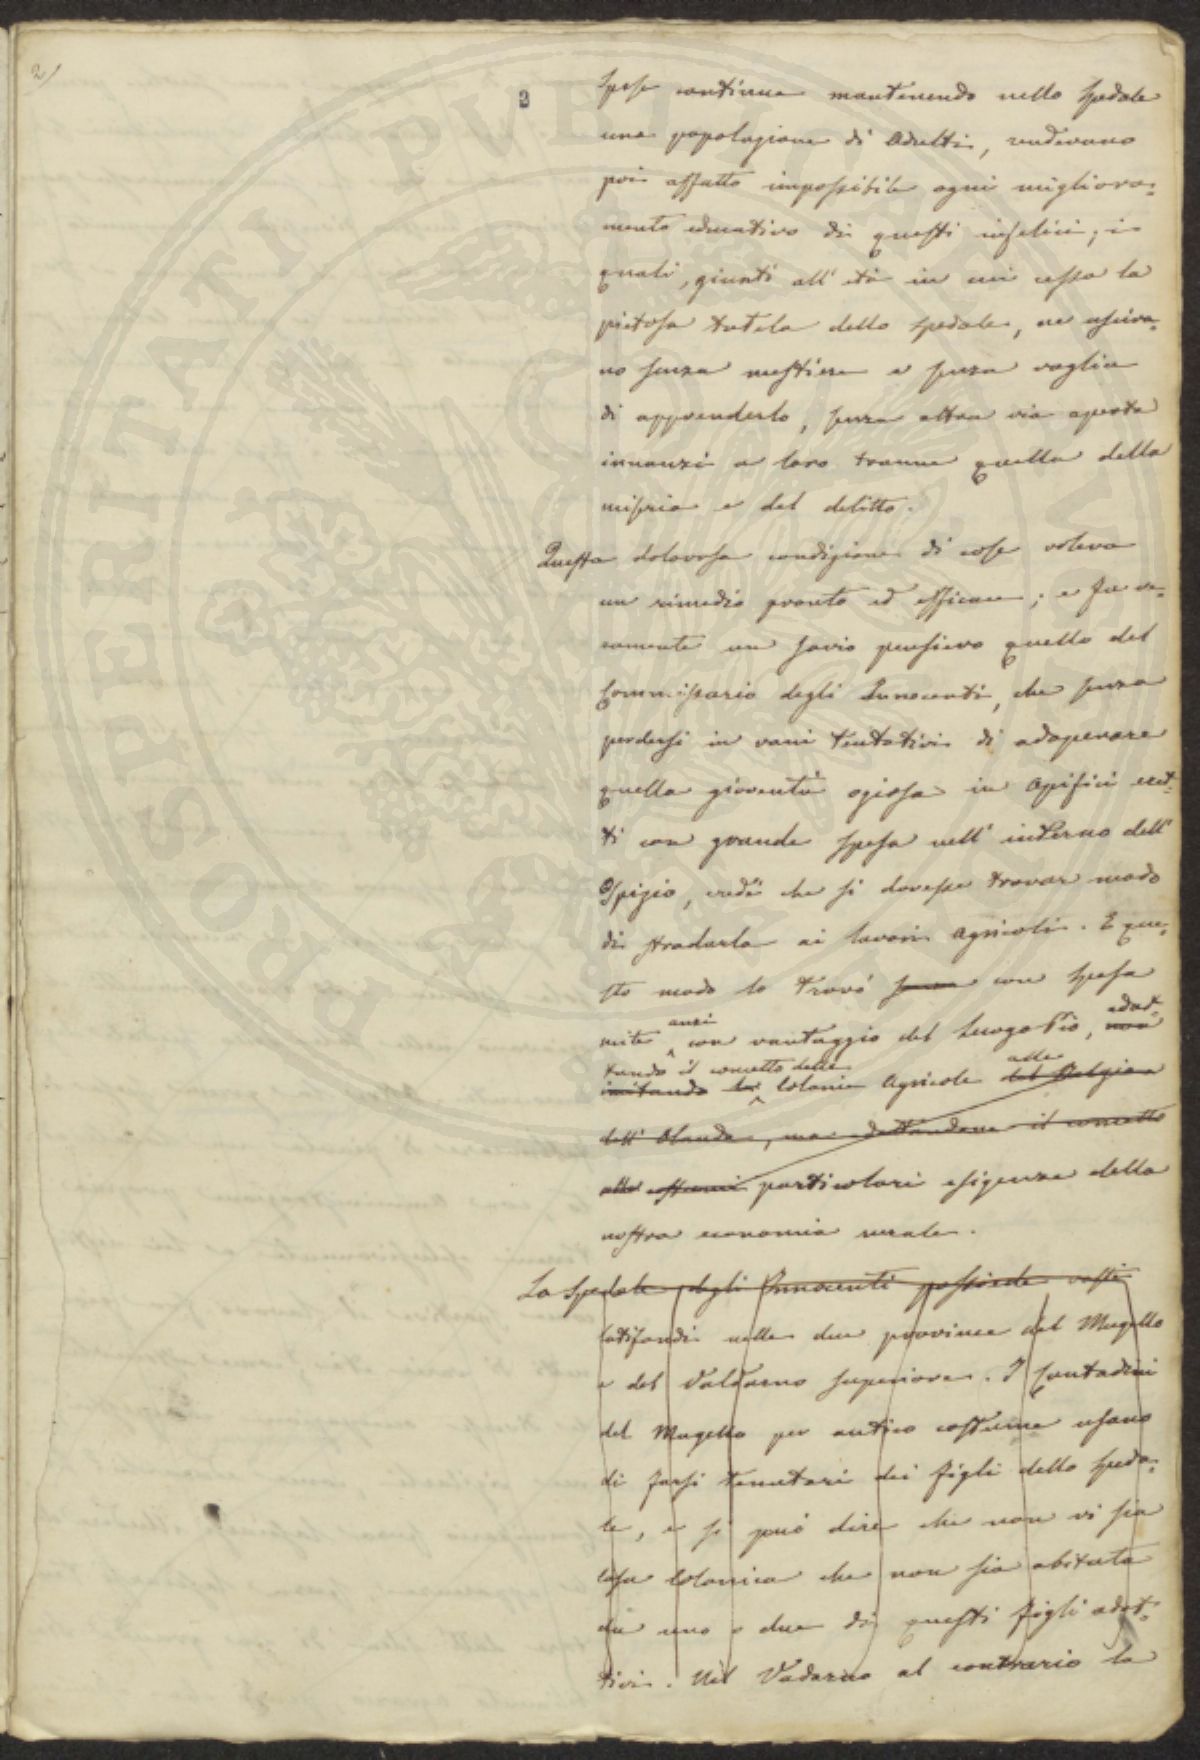 2/
2
spese continue mantenendo nello Spedale
una popolazione di Adulti, rendevano
poi affatto impossibile ogni migliora=
mento educativo di questi infelici; i
quali, giunti all' età in cui cessa la
pietosa tutela dello Spedale, ne usciva=
no senza mestiere e senza voglia
di apprenderlo, senza altra via aperta
innanzi a loro tranne quella della
miseria e del delitto.
Questa dolorosa condizione di cose voleva
un rimedio pronto ed efficace; e fu ve=
ramente un savio pensiero quello del
Commissario degli Innocenti, che senza
perdersi in vani tentativi di adoperare
quella gioventù oziosa in Opifici eret=
ti con grande spesa nell' interno dell'
Ospizio, credè che si dovesse trovar modo
di tradarla ai lavori agricoli. E que=
sto modo lo trovò senza con spesa
mite anzi con vantaggio del Luogo Pio, non adat=
tando il concetto delle
imitando le Colonie Agricole del Belgio e alle
dell' Olanda, ma adattandone il concetto
alle particolari esigenze della
nostra economia rurale.
Lo Spedale degli Innocenti possiede vasti
latifondi nelle due province del Mugello
e del Valdarno superiore. I Contadini
del Mugello per antico costume usano
di farsi tenutari dei figli dello Speda=
le, e si può dire che non vi sia
Casa Colonica che non sia abitata
da uno o due di questi figli adot=
tivi. Nel Vadarno al contrario la
PROSPERITATI PUBLICAE